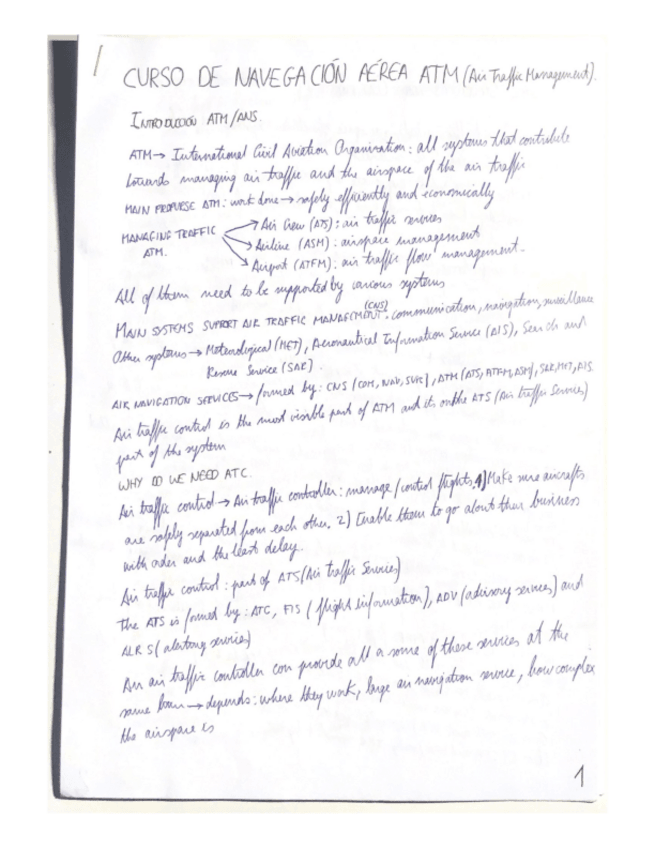 CURSO DE NAVEGACIÓN AÉREA ATM (Air Traffic Management).
INTRODUCCIÓN ATM/ANS.
ATM → International Civil Aviation Organisation: all systems that contribute
towards managing air traffic and the airspace of the air traffic
MAIN PROPUESE ATM: work done → safely efficiently and economically
MANAGING TRAFFIC ATM.
Air Crew (ATS): air traffic services
Airline (ASM): airspace management
Airport (ATFM): air traffic flow management.
All of them need to be supported by various systems
MAIN SYSTEMS SUPORT AIR TRAFFIC MANAGEMENT (CNS): communication, navigation, surveillance
Other systems → Meteorological (MET), Aeronautical Information Service (AIS), Search and
Rescue Service (SAR).
AIR NAVIGATION SERVICES → formed by: CNS (COM, NAV, SUR), ATM (ATS, ATFM, ASM), SAR, MET, AIS.
Air traffic control is the most visible part of ATM and its on the ATS (Air traffic Services)
part of the system
WHY DO WE NEED ATC.
Air traffic control → Air traffic controller: manage/control flights. 1) Make sure aircrafts
are safely separated from each other. 2) Enable them to go about their business
with order and the least delay.
Air traffic control: part of ATS (Air traffic Services)
The ATS is formed by: ATC, FIS (flight information), ADV (advisory services) and
ALRS (alerting services)
An air traffic controller can provide all or some of these services at the
same time → depends: where they work, large air navigation service, how complex
the airspace is
1